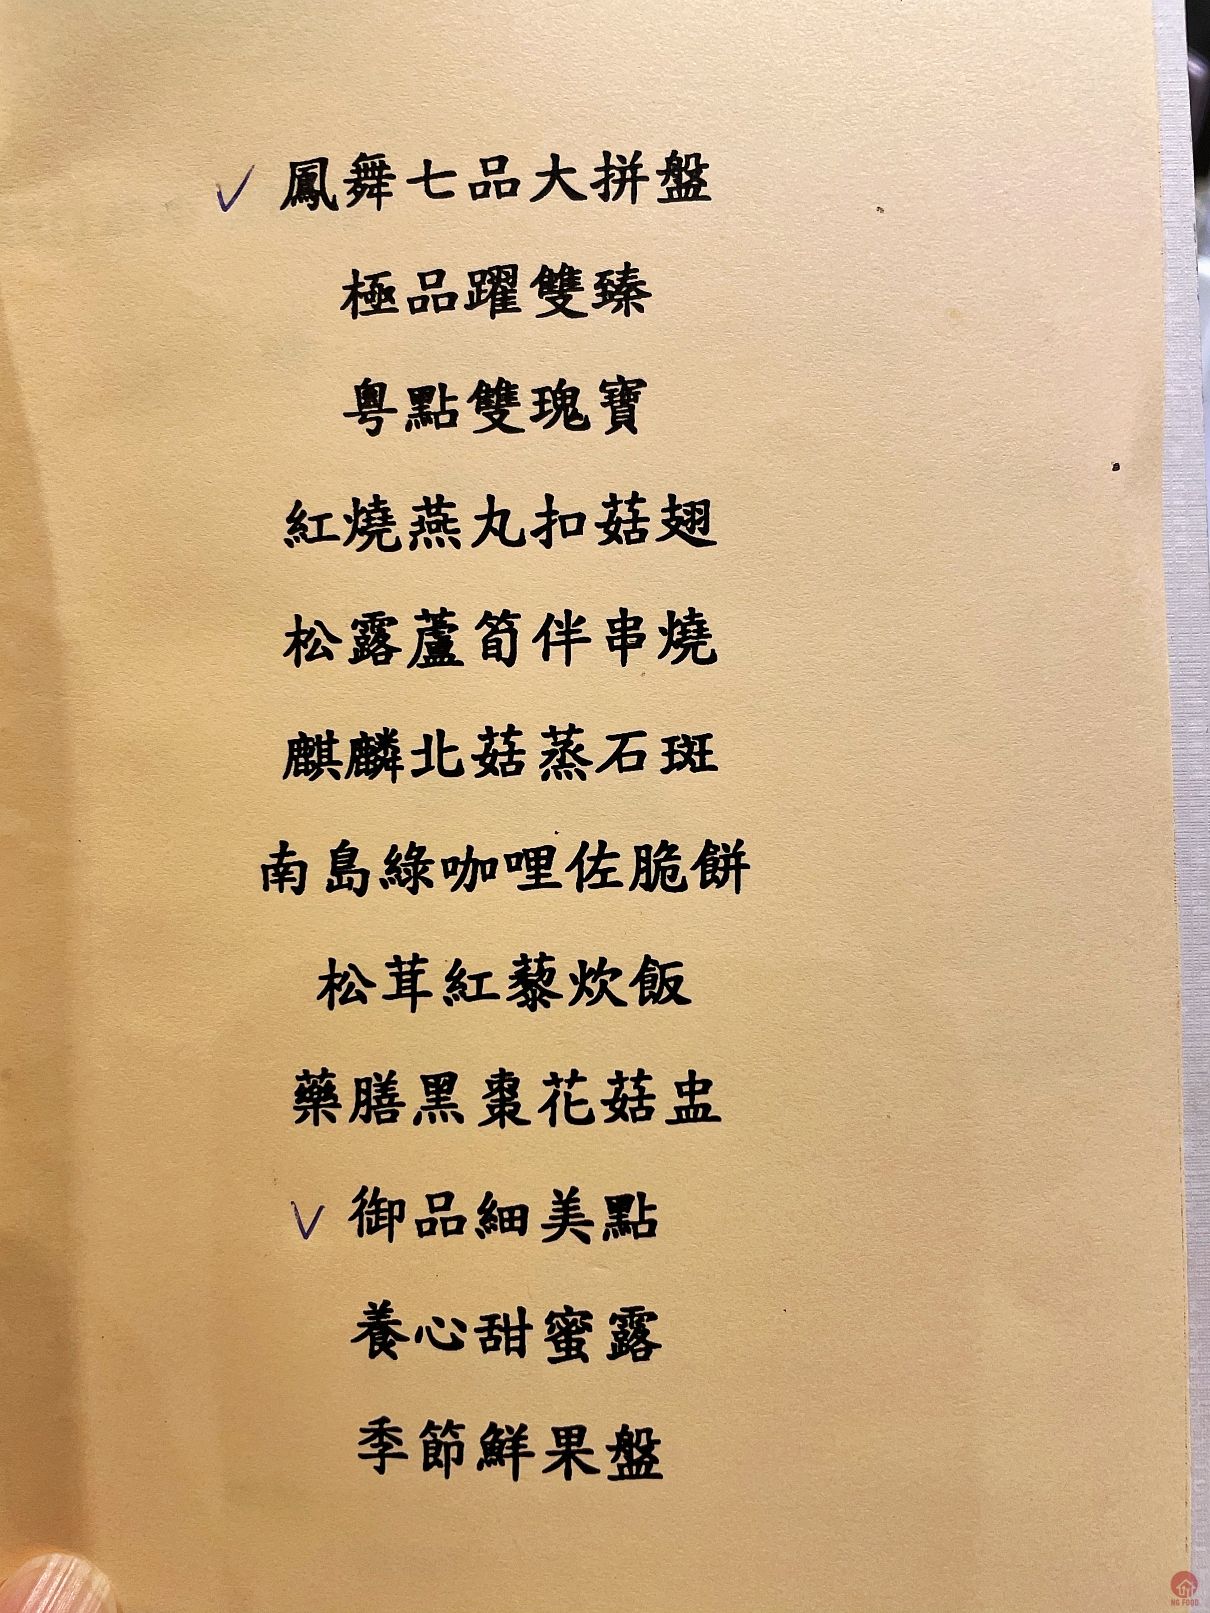 ✓ 鳳舞七品大拼盤
極品躍雙臻
粵點雙瑰寶
紅燒燕丸扣菇翅
松露蘆筍伴串燒
麒麟北菇蒸石斑
南島綠咖哩佐脆餅
松茸紅藜炊飯
藥膳黑棗花菇盅
✓ 御品細美點
養心甜蜜露
季節鮮果盤
NG FOOD